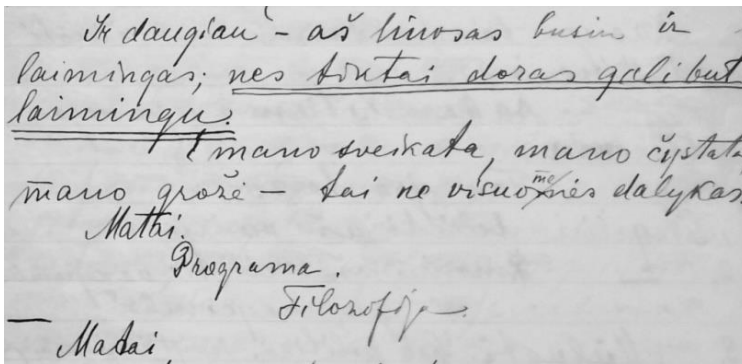 Ir daugiau – aš linosas busiu ir
laimingas; nes tiktai doras gali but
laimingu.
(mano sveikata, mano čystata,
mano grožė – tai ne visuomenės dalykas.
Matai.
Programa.
Filozofija.
— Matai